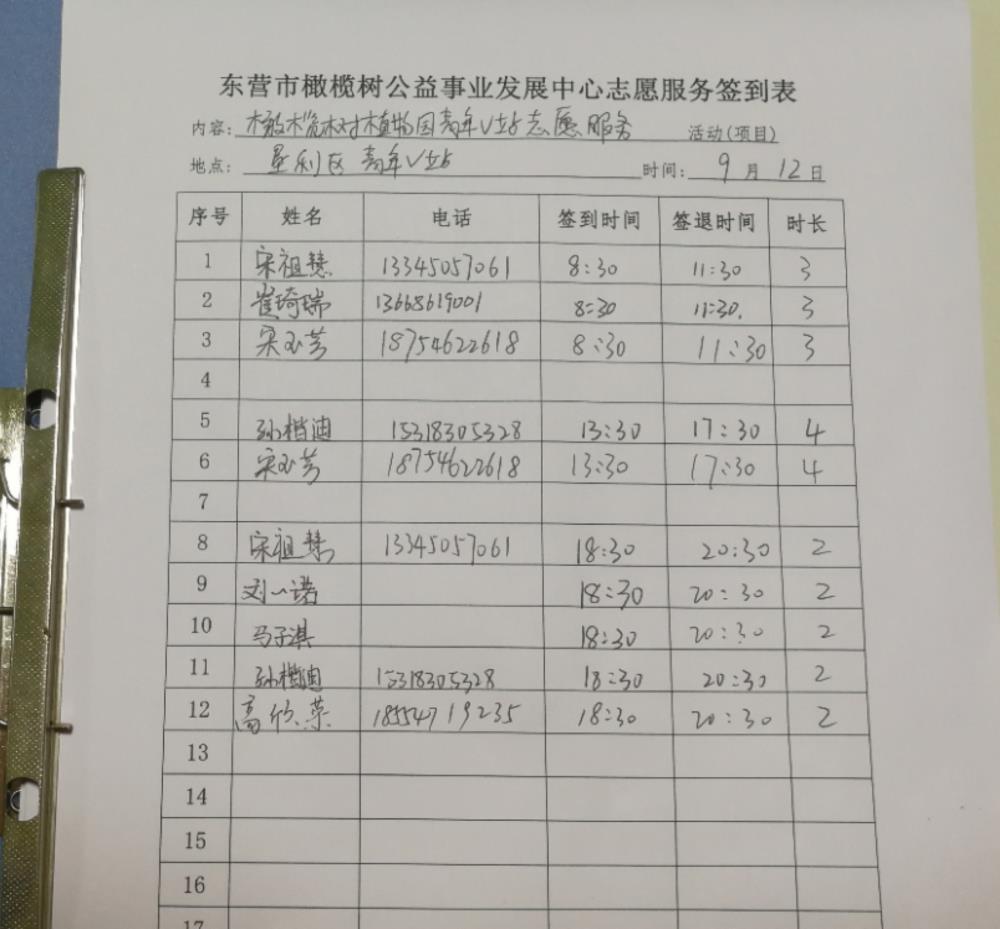 东营市橄榄树公益事业发展中心志愿服务签到表
内容: 橄榄树植物园青年V站志愿服务 活动(项目)
地点: 垦利区 青年V站 时间: 9 月 12 日
序号 姓名 电话 签到时间 签退时间 时长
1 宋祖慧 13345057061 8:30 11:30 3
2 崔琦瑞 13668619001 8:30 11:30. 3
3 宋玉芳 18754622618 8:30 11:30 3
4
5 孙楷迪 15318305328 13:30 17:30 4
6 宋玉芳 18754622618 13:30 17:30 4
7
8 宋祖慧 13345057061 18:30 20:30 2
9 刘一诺 18:30 20:30 2
10 马子淇 18:30 20:30 2
11 孙楷迪 15318305328 18:30 20:30 2
12 高欣荣 18554719235 18:30 20:30 2
13
14
15
16
17